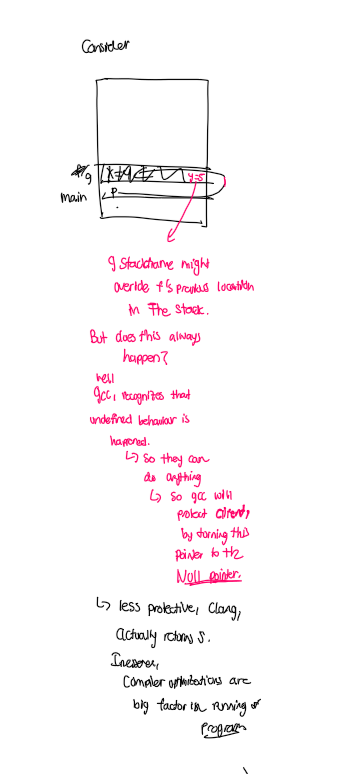 Consider
g x=4 y=5
main p
g stackframe might
override f's previous location
in the stack.
But does this always
happen?
well
gcc, recognizes that
undefined behaviour is
happened.
↳ so they can
do anything
↳ so gcc will
protect
by turning this
pointer to the
Null pointer.
↳ less protective, Clang,
actually returns 5.
Compiler optimizations are
big factor in running of
program